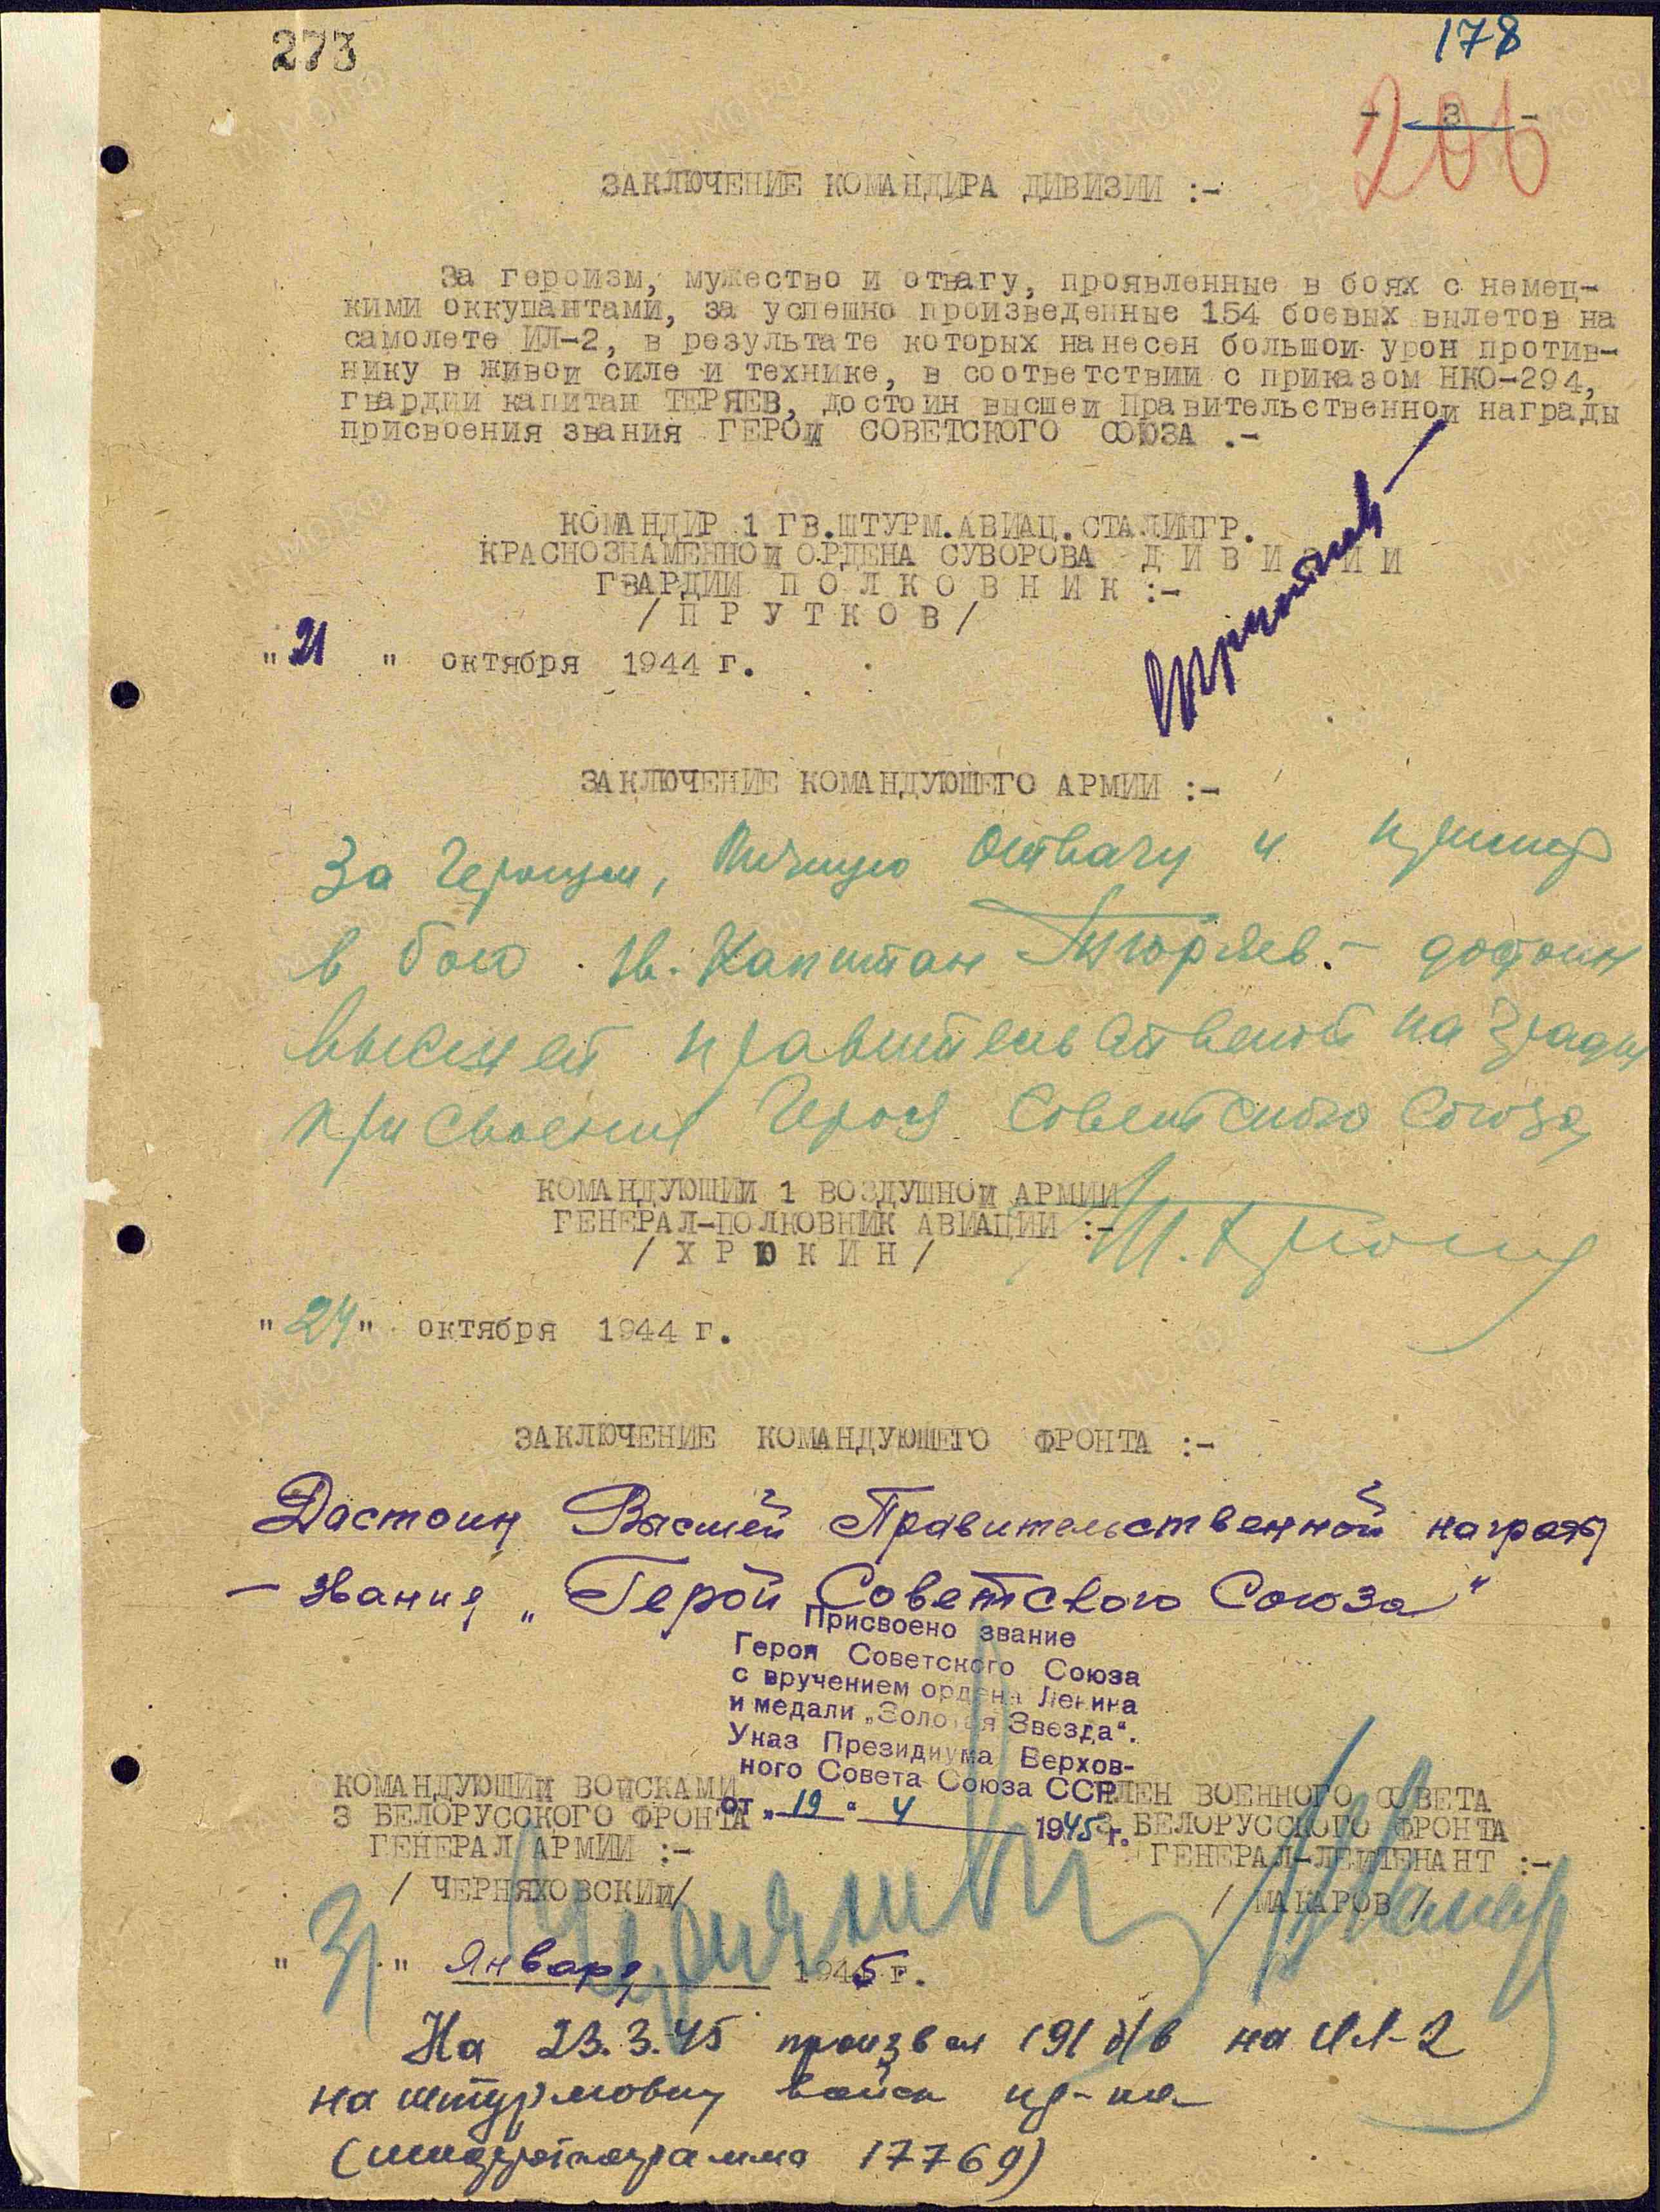 273
178
206
- 3 -
ЗАКЛЮЧЕНИЕ КОМАНДИРА ДИВИЗИИ :-
За героизм, мужество и отвагу, проявленные в боях с немец-
кими оккупантами, за успешно произведенные 154 боевых вылетов на
самолете ИЛ-2, в результате которых нанесен большой урон против-
нику в живой силе и технике, в соответствии с приказом НКО-294,
гвардии капитан ТЕРЯЕВ, достоин высшей Правительственной награды
присвоения звания ГЕРОЙ СОВЕТСКОГО СОЮЗА .-
КОМАНДИР 1 ГВ.ШТУРМ.АВИАЦ.СТАЛИНГР.
КРАСНОЗНАМЕННОЙ ОРДЕНА СУВОРОВА Д И В И З И И
ГВАРДИИ П О Л К О В Н И К :-
/ П Р У Т К О В /
" 21 " октября 1944 г.
ЗАКЛЮЧЕНИЕ КОМАНДУЮЩЕГО АРМИИ :-
За Героизм, личную отвагу и пример
в бою Гв. Капитан - достоин
высшей правительственной награды
присвоения Героя Советского Союза
КОМАНДУЮЩИЙ 1 ВОЗДУШНОЙ АРМИИ
ГЕНЕРАЛ-ПОЛКОВНИК АВИАЦИИ :-
/ Х Р Ю К И Н /
" 24 " октября 1944 г.
ЗАКЛЮЧЕНИЕ КОМАНДУЮЩЕГО ФРОНТА :-
Достоин Высшей Правительственной награды
- звания „Герой Советского Союза"
Присвоено звание
Героя Советского Союза
с вручением ордена Ленина
и медали „Золотая Звезда".
Указ Президиума Верхов-
ного Совета Союза ССР
от „ 19 " 4 1945 г.
КОМАНДУЮЩИЙ ВОЙСКАМИ
3 БЕЛОРУССКОГО ФРОНТА
ГЕНЕРАЛ АРМИИ :-
/ ЧЕРНЯХОВСКИЙ/
ЧЛЕН ВОЕННОГО СОВЕТА
3 БЕЛОРУССКОГО ФРОНТА
ГЕНЕРАЛ-ЛЕЙТЕНАНТ :-
/ МАКАРОВ /
" 31 " Января 1945 г.
На 23.3.45 произвел 191 б/в на ИЛ-2
на штурмовку войск пр-ка
(шифротелеграмма 17769)